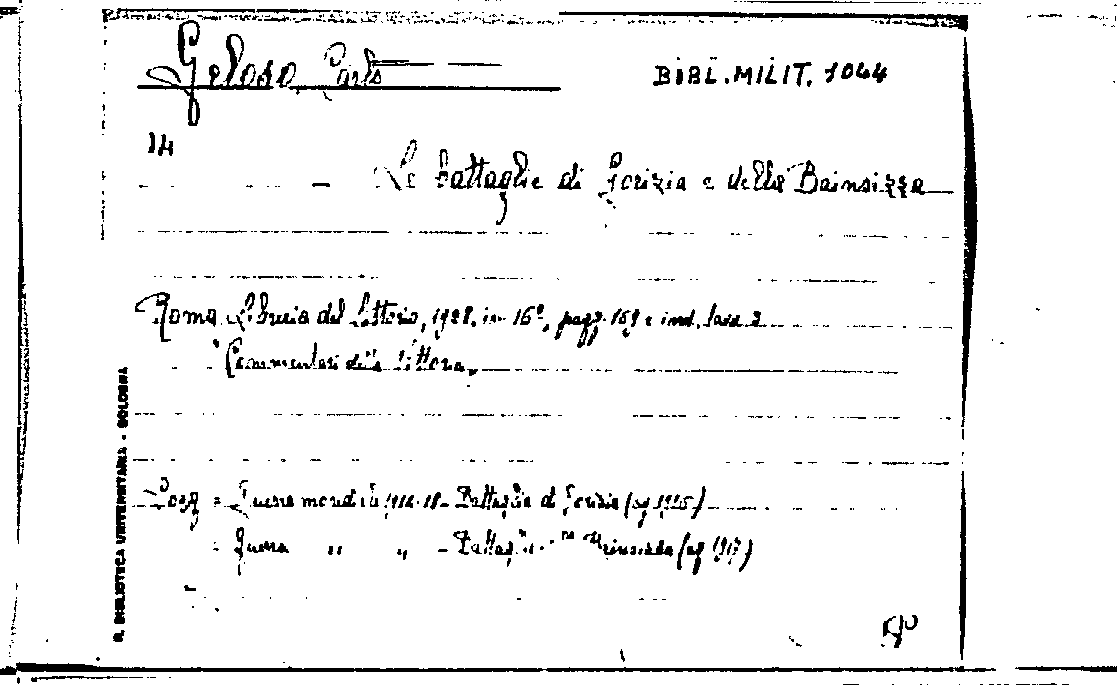 Geloso, Carlo
BIBL. MILIT. 1044
14
— Le battaglie di Gorizia e della Bainsizza
Roma, Libreria del Littorio, 1928, in 16°, pagg. 169 e ind. tav. 3
Commentari della Vittoria.
Sogg = Guerra mondiale 1914-18 - Battaglia di Gorizia (ag
= Guerra " " - Battaglia Bainsizza (ag 1917)
R. BIBLIOTECA UNIVERSITARIA - BOLOGNA